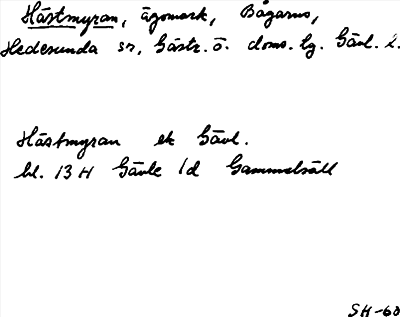 Hästmyran, ägomark, Bågarns,
Hedesunda sn, Gästr. ö. doms. lg. Gävl. l.
Hästmyran ek Gävl.
bl. 13 H Gävle 1d Gammelsäll
SH-68